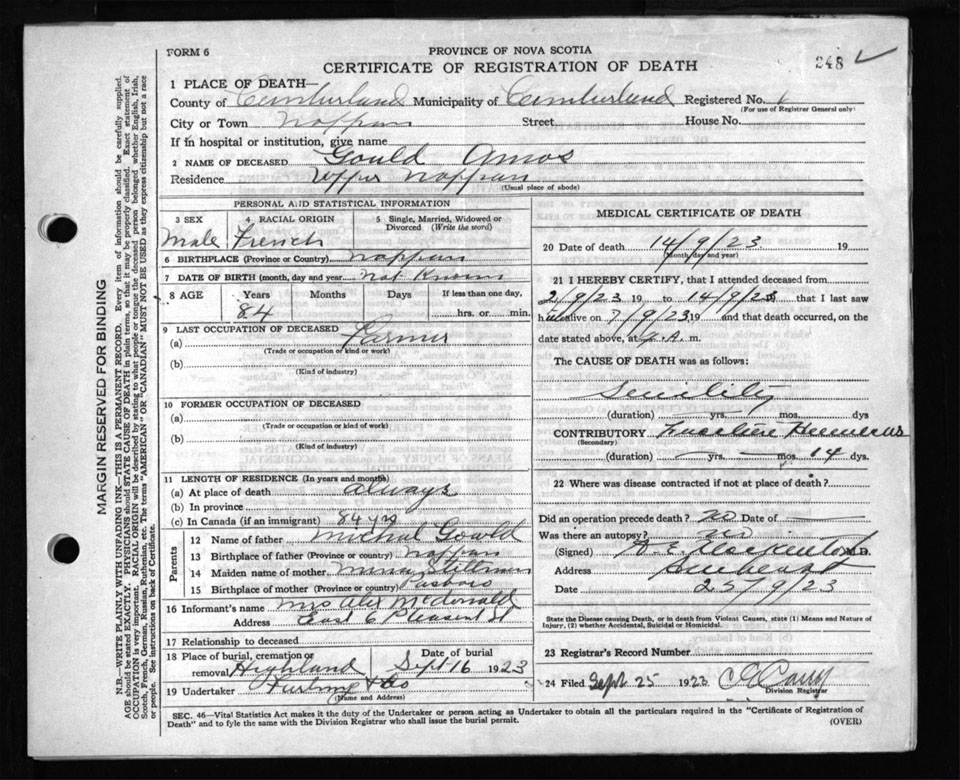 FORM 6
PROVINCE OF NOVA SCOTIA
248 ✓
CERTIFICATE OF REGISTRATION OF DEATH
1 PLACE OF DEATH—
County of Cumberland Municipality of Cumberland Registered No.
(For use of Registrar General only)
City or Town Nappan Street House No.
If in hospital or institution, give name
2 NAME OF DECEASED Gould Amos
Residence Upper Nappan
(Usual place of abode)
PERSONAL AND STATISTICAL INFORMATION
3 SEX 4 RACIAL ORIGIN 5 Single, Married, Widowed or Divorced (Write the word)
Male French
6 BIRTHPLACE (Province or Country) Nappan
7 DATE OF BIRTH (month, day and year) Not Known
8 AGE Years Months Days If less than one day,
84 hrs. or min.
9 LAST OCCUPATION OF DECEASED
(a) Farmer
(Trade or occupation or kind or work)
(b)
(Kind of industry)
10 FORMER OCCUPATION OF DECEASED
(a)
(Trade or occupation or kind of work)
(b)
(Kind of industry)
11 LENGTH OF RESIDENCE (In years and months)
(a) At place of death always
(b) In province
(c) In Canada (if an immigrant) 84 yrs
Parents
12 Name of father Michal Gould
13 Birthplace of father (Province or country) Nappan
14 Maiden name of mother
15 Birthplace of mother (Province or country)
16 Informant's name Mrs Alex McDonald
Address East Pleasent St
17 Relationship to deceased
18 Place of burial, cremation or removal Highland Date of burial Sept 16 1923
19 Undertaker & Co
(Name and Address)
MEDICAL CERTIFICATE OF DEATH
20 Date of death 14/9/23 19
(Month, day and year)
21 I HEREBY CERTIFY, that I attended deceased from
2/9/23 19 to 14/9/23 that I last saw
h alive on 7/9/23, 19 and that death occurred, on the
date stated above, at A. m.
The CAUSE OF DEATH was as follows:
Senility
(duration) yrs. mos. dys
CONTRIBUTORY
(Secondary)
(duration) — yrs. — mos. 14 dys.
22 Where was disease contracted if not at place of death?
Did an operation precede death? no Date of —
Was there an autopsy? no
(Signed) M.D.
Address Amherst
Date 25/9/23
State the Disease causing Death, or in death from Violent Causes, state (1) Means and Nature of Injury, (2) whether Accidental, Suicidal or Homicidal.
23 Registrar's Record Number
24 Filed Sept 25 1923
Division Registrar
SEC. 46—Vital Statistics Act makes it the duty of the Undertaker or person acting as Undertaker to obtain all the particulars required in the "Certificate of Registration of
Death" and to fyle the same with the Division Registrar who shall issue the burial permit.
(OVER)
MARGIN RESERVED FOR BINDING
N.B.—WRITE PLAINLY WITH UNFADING INK—THIS IS A PERMANENT RECORD. Every item of information should be carefully supplied.
AGE should be stated EXACTLY. PHYSICIANS should STATE CAUSE OF DEATH in plain terms, so that it may be properly classified. Exact statement of
OCCUPATION is very important. RACIAL ORIGIN will be described by stating to what people or tongue the deceased person belonged whether English, Irish,
Scotch, French, German, Russian, Ruthenian, etc. The terms "AMERICAN" OR "CANADIAN" MUST NOT BE USED as they express citizenship but not a race
or people. See instructions on back of Certificate.